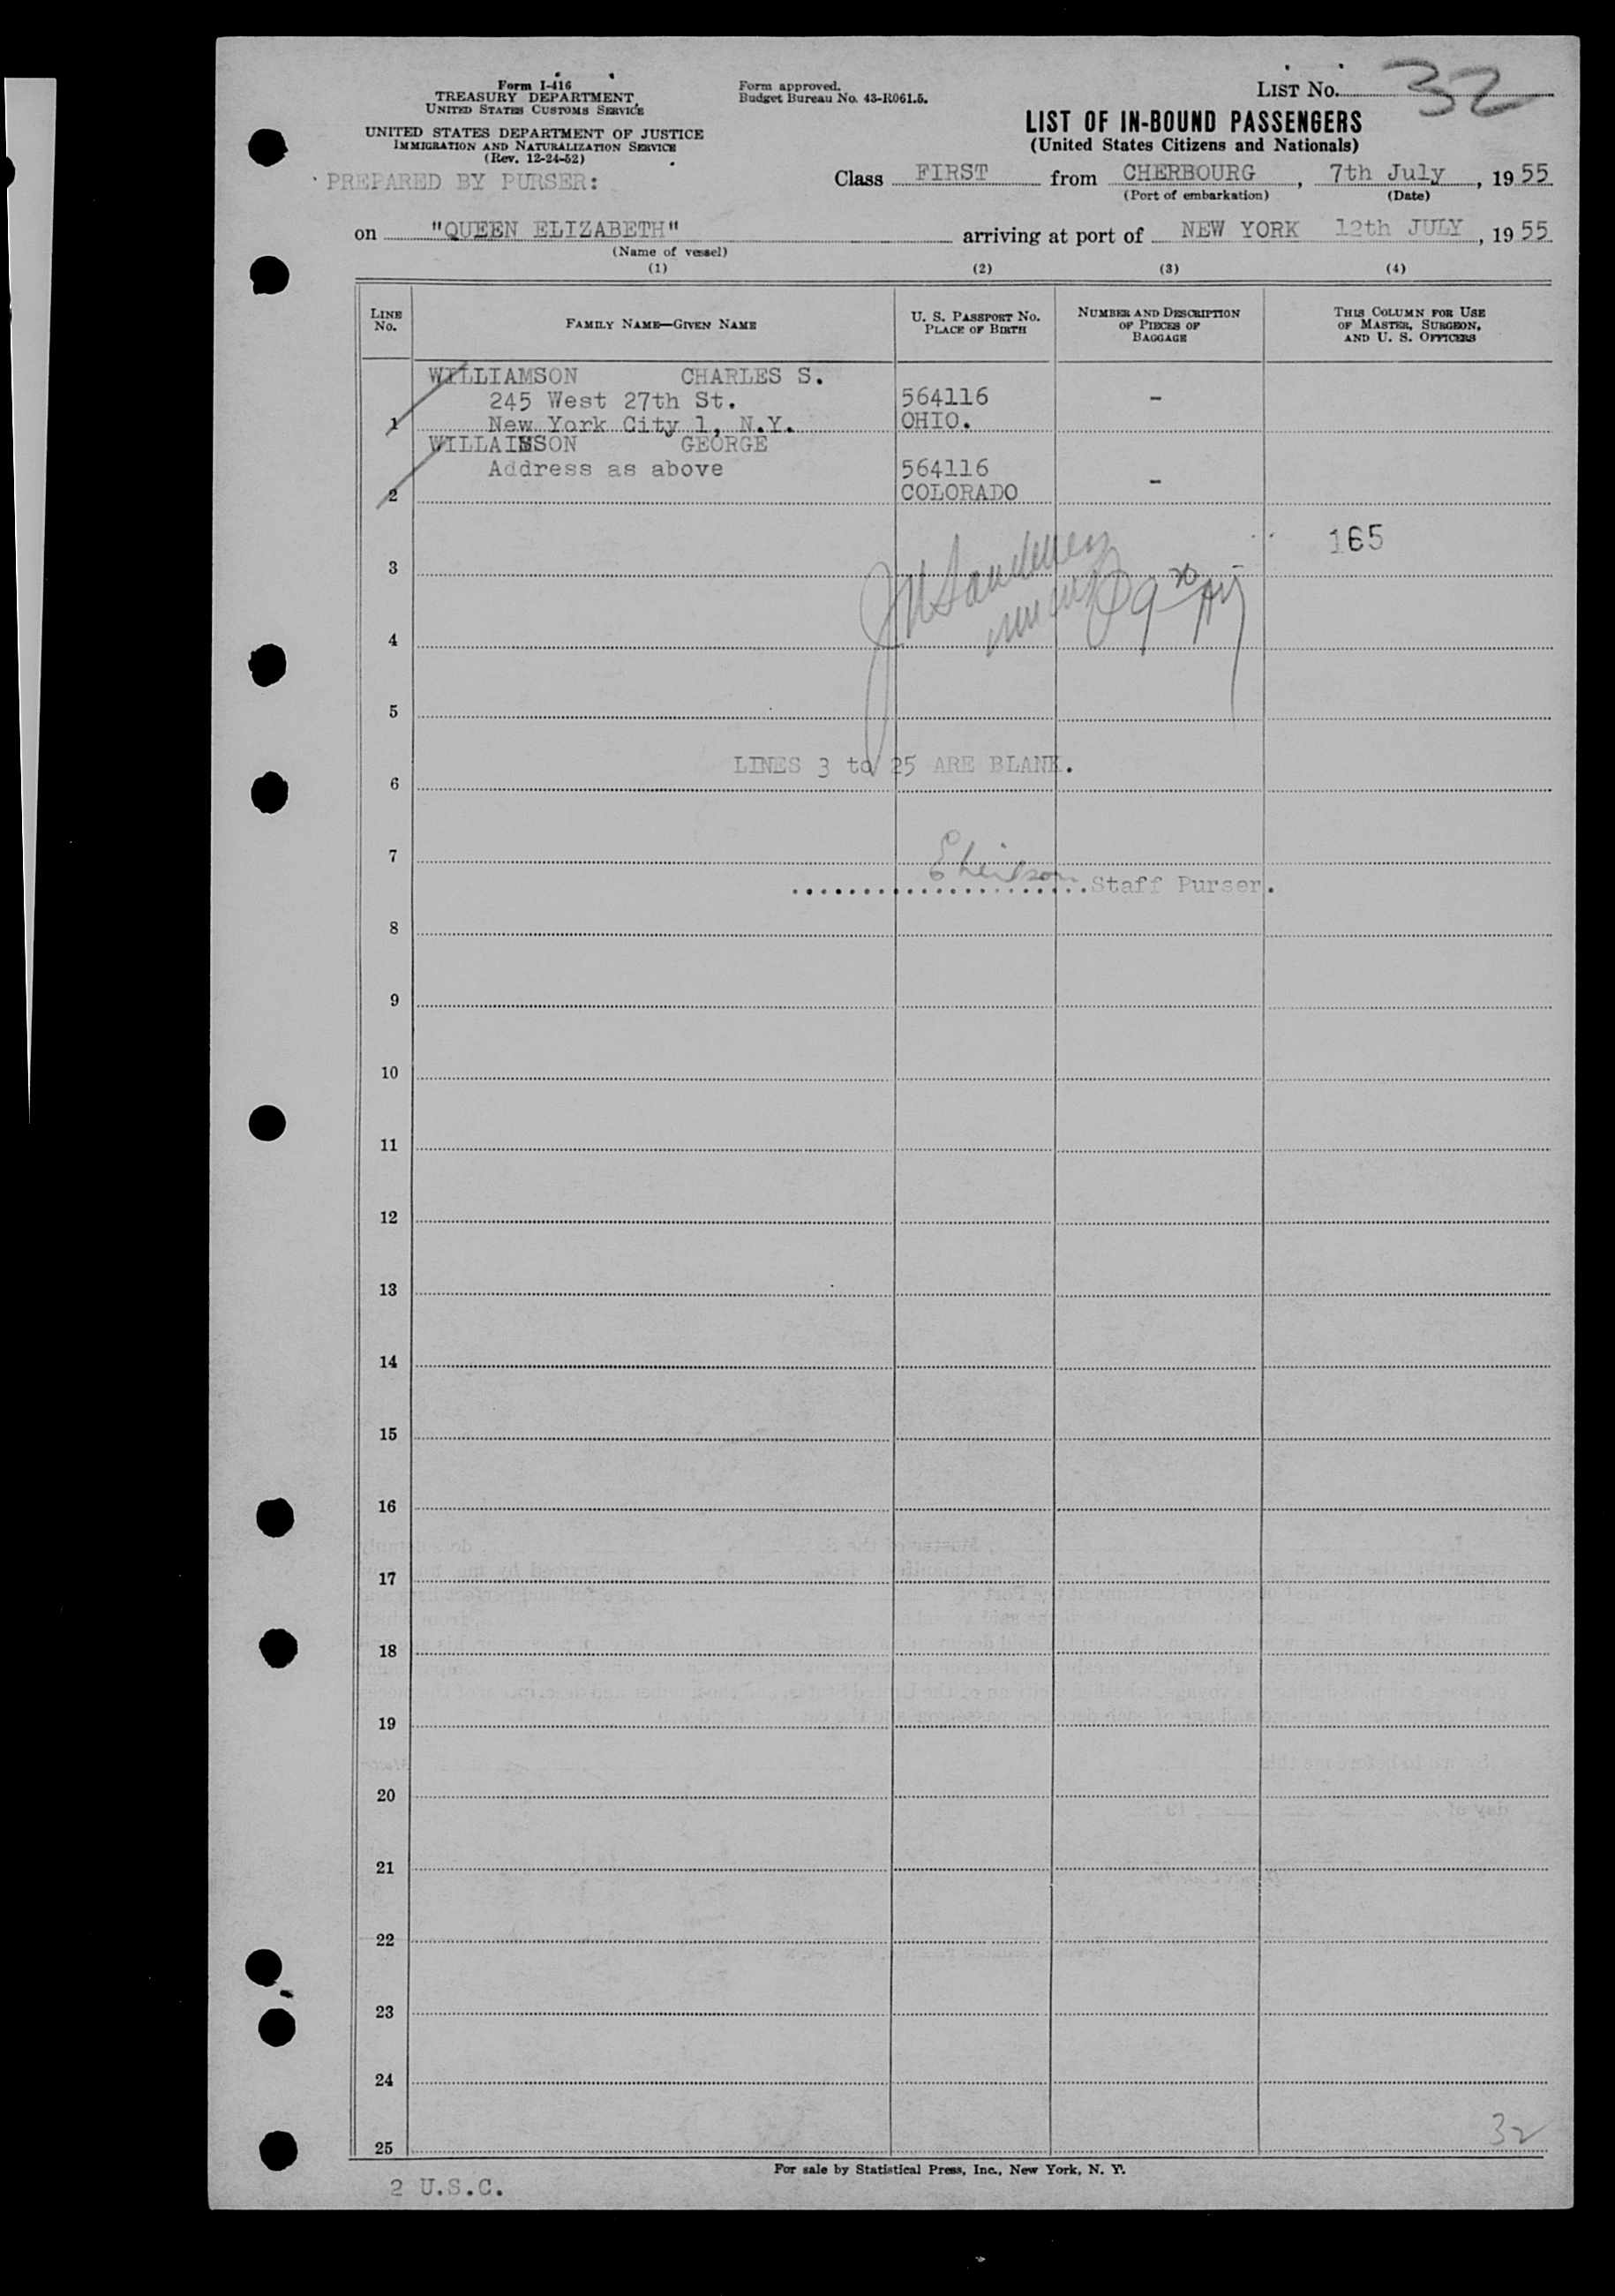 Form I-416
TREASURY DEPARTMENT
UNITED STATES CUSTOMS SERVICE
UNITED STATES DEPARTMENT OF JUSTICE
IMMIGRATION AND NATURALIZATION SERVICE
(Rev. 12-24-52)
PREPARED BY PURSER:
Form approved.
Budget Bureau No. 43-R061.5.
LIST No. 32
LIST OF IN-BOUND PASSENGERS
(United States Citizens and Nationals)
Class FIRST from CHERBOURG, 7th July, 1955
(Port of embarkation) (Date)
on "QUEEN ELIZABETH" arriving at port of NEW YORK 12th JULY, 1955
(Name of vessel)
(1) (2) (3) (4)
LINE No. FAMILY NAME—GIVEN NAME U. S. PASSPORT No. PLACE OF BIRTH NUMBER AND DESCRIPTION OF PIECES OF BAGGAGE THIS COLUMN FOR USE OF MASTER, SURGEON, AND U. S. OFFICERS
WILLIAMSON CHARLES S.
245 West 27th St. 564116 -
1 New York City 1, N.Y. OHIO.
WILLAIMSON GEORGE
Address as above 564116
2 COLORADO -
165
3
4
5
LINES 3 to 25 ARE BLANK.
6
7
Staff Purser.
8
9
10
11
12
13
14
15
16
17
18
19
20
21
22
23
24
32
25
For sale by Statistical Press, Inc., New York, N. Y.
2 U.S.C.